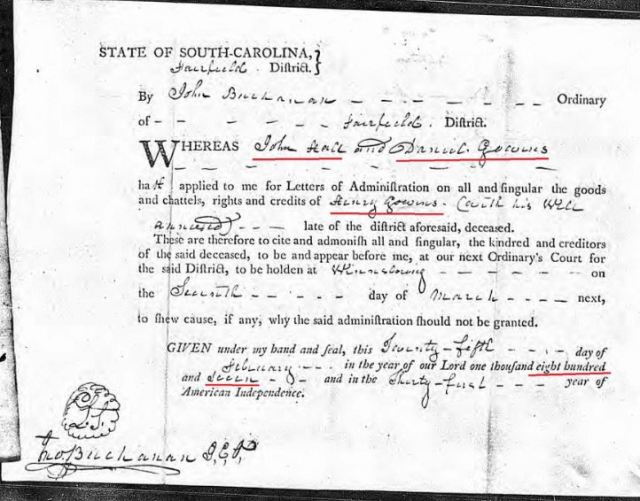 STATE OF SOUTH-CAROLINA,
Fairfield. District.
By John Buchanan Ordinary
of Fairfield. District.
WHEREAS John Hall and Daniel Gowens
hath applied to me for Letters of Administration on all and singular the goods
and chattels, rights and credits of Henry Gowens. (with his Will
annexed) late of the district aforesaid, deceased.
These are therefore to cite and admonish all and singular, the kindred and creditors
of the said deceased, to be and appear before me, at our next Ordinary's Court for
the said District, to be holden at Winnsborug on
the Seventh day of March next,
to shew cause, if any, why the said administration should not be granted.
GIVEN under my hand and seal, this Twenty-fifth day of
February in the year of our Lord one thousand eight hundred
and seven and in the Thirty-first year of
American Independence.
Jno Buchanan